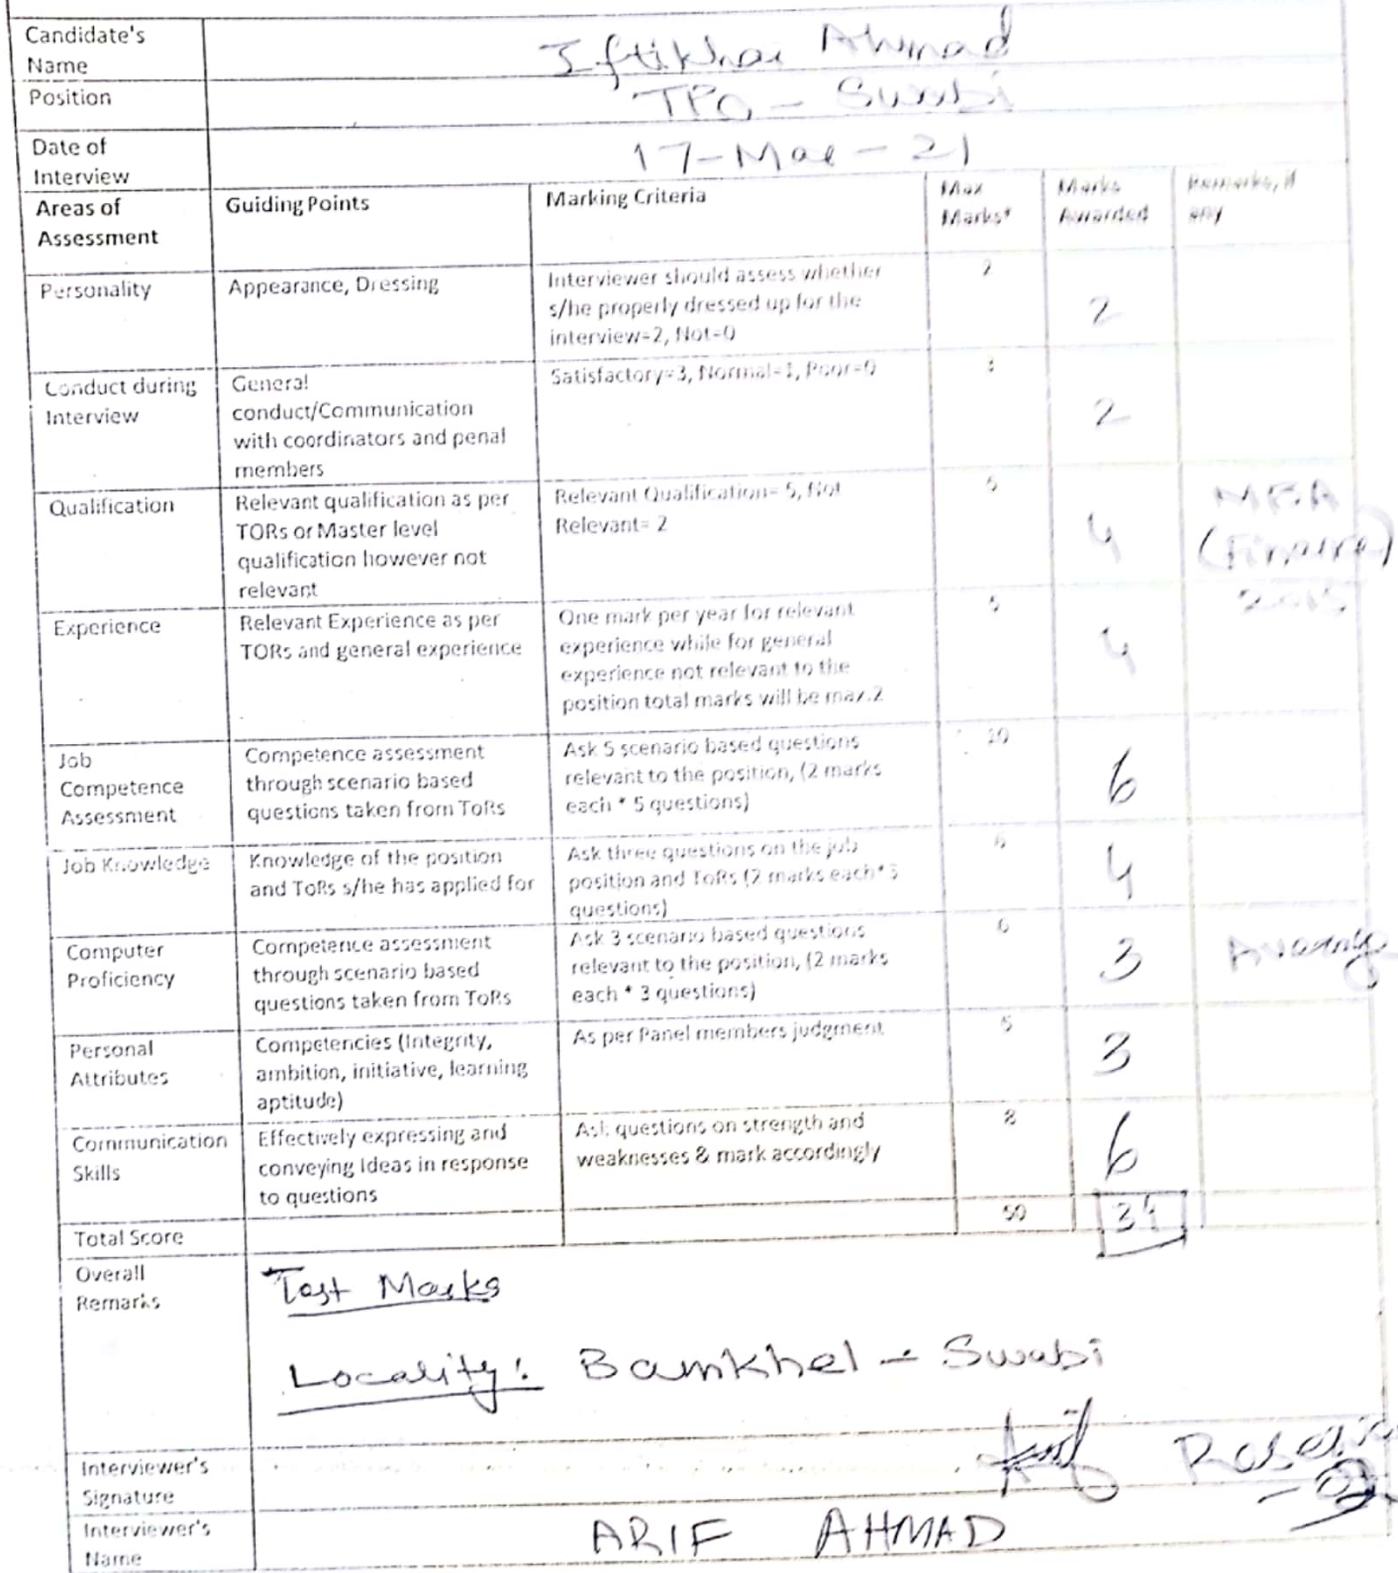 Candidate's
Name
Iftikhar Ahmad
Position
TPO - Swabi
Date of
Interview
17-Mar-21
Areas of
Assessment
Guiding Points
Marking Criteria
Max
Marks*
Marks
Awarded
Remarks, if
any
Personality
Appearance, Dressing
Interviewer should assess whether
s/he properly dressed up for the
interview=2, Not=0
2
2
Conduct during
Interview
General
conduct/Communication
with coordinators and penal
members
Satisfactory=3, Normal=1, Poor=0
3
2
Qualification
Relevant qualification as per
TORs or Master level
qualification however not
relevant
Relevant Qualification= 5, Not
Relevant= 2
5
4
MBA
(Finance)
2015
Experience
Relevant Experience as per
TORs and general experience
One mark per year for relevant
experience while for general
experience not relevant to the
position total marks will be max.2
5
4
Job
Competence
Assessment
Competence assessment
through scenario based
questions taken from ToRs
Ask 5 scenario based questions
relevant to the position, (2 marks
each * 5 questions)
10
6
Job Knowledge
Knowledge of the position
and ToRs s/he has applied for
Ask three questions on the job
position and ToRs (2 marks each* 3
questions)
6
4
Computer
Proficiency
Competence assessment
through scenario based
questions taken from ToRs
Ask 3 scenario based questions
relevant to the position, (2 marks
each * 3 questions)
6
3
Average
Personal
Attributes
Competencies (Integrity,
ambition, initiative, learning
aptitude)
As per Panel members judgment
5
3
Communication
Skills
Effectively expressing and
conveying Ideas in response
to questions
Ask questions on strength and
weaknesses & mark accordingly
8
6
Total Score
50
34
Overall
Remarks
Test Marks
Locality: Bamkhel - Swabi
Interviewer's
Signature
Interviewer's
Name
ARIF AHMAD